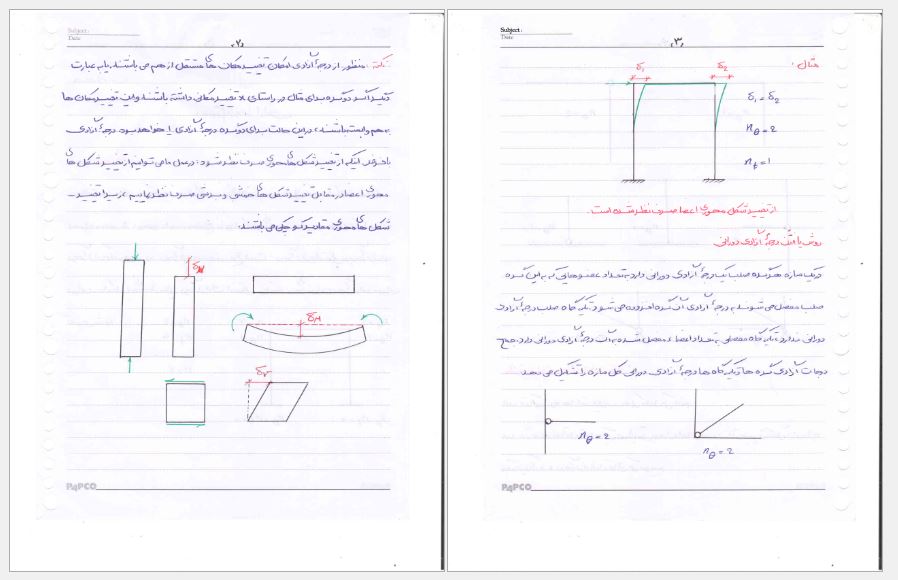 Subject:
Date
۰۲۰
نکته: منظور از درجه آزادی امکان تغییر مکان های مستقل از هم می باشند. به عبارت
دیگر اگر دو گره برای مثال در راستای x تغییر مکانی داشته باشند ولی این تغییر مکان ها
به هم وابسته باشند، در این حالت برای دو گره درجه آزادی 1 خواهد بود. درجه آزادی
با فرض اینکه از تغییر شکل های محوری صرف نظر شود: در عمل ما می توانیم از تغییر شکل های
محوری اعضا در مقابل تغییر شکل های خمشی و برشی صرف نظر نماییم، زیرا تغییر
شکل های محوری مقادیر کوچکی می باشند.
δN
δM
δV
PAPCO
Subject:
Date
۰۳۰
مثال:
δ1 δ2
δ1 = δ2
nθ = 2
nt = 1
از تغییر شکل محوری اعضا صرف نظر شده است.
روش یافتن درجه آزادی دورانی
در یک سازه هر گره صلب یک درجه آزادی دورانی دارد، به تعداد عضوهایی که به این گره
صلب مفصل می شوند به درجه آزادی آن گره افزوده می شود. تکیه گاه صلب درجه آزادی
دورانی ندارد، تکیه گاه مفصلی به تعداد اعضاء مفصل شده به آن درجه آزادی دورانی دارد. جمع
درجات آزادی گره ها و تکیه گاه ها درجه آزادی دورانی کل سازه را تشکیل می دهد
nθ = 2
nθ = 2
PAPCO